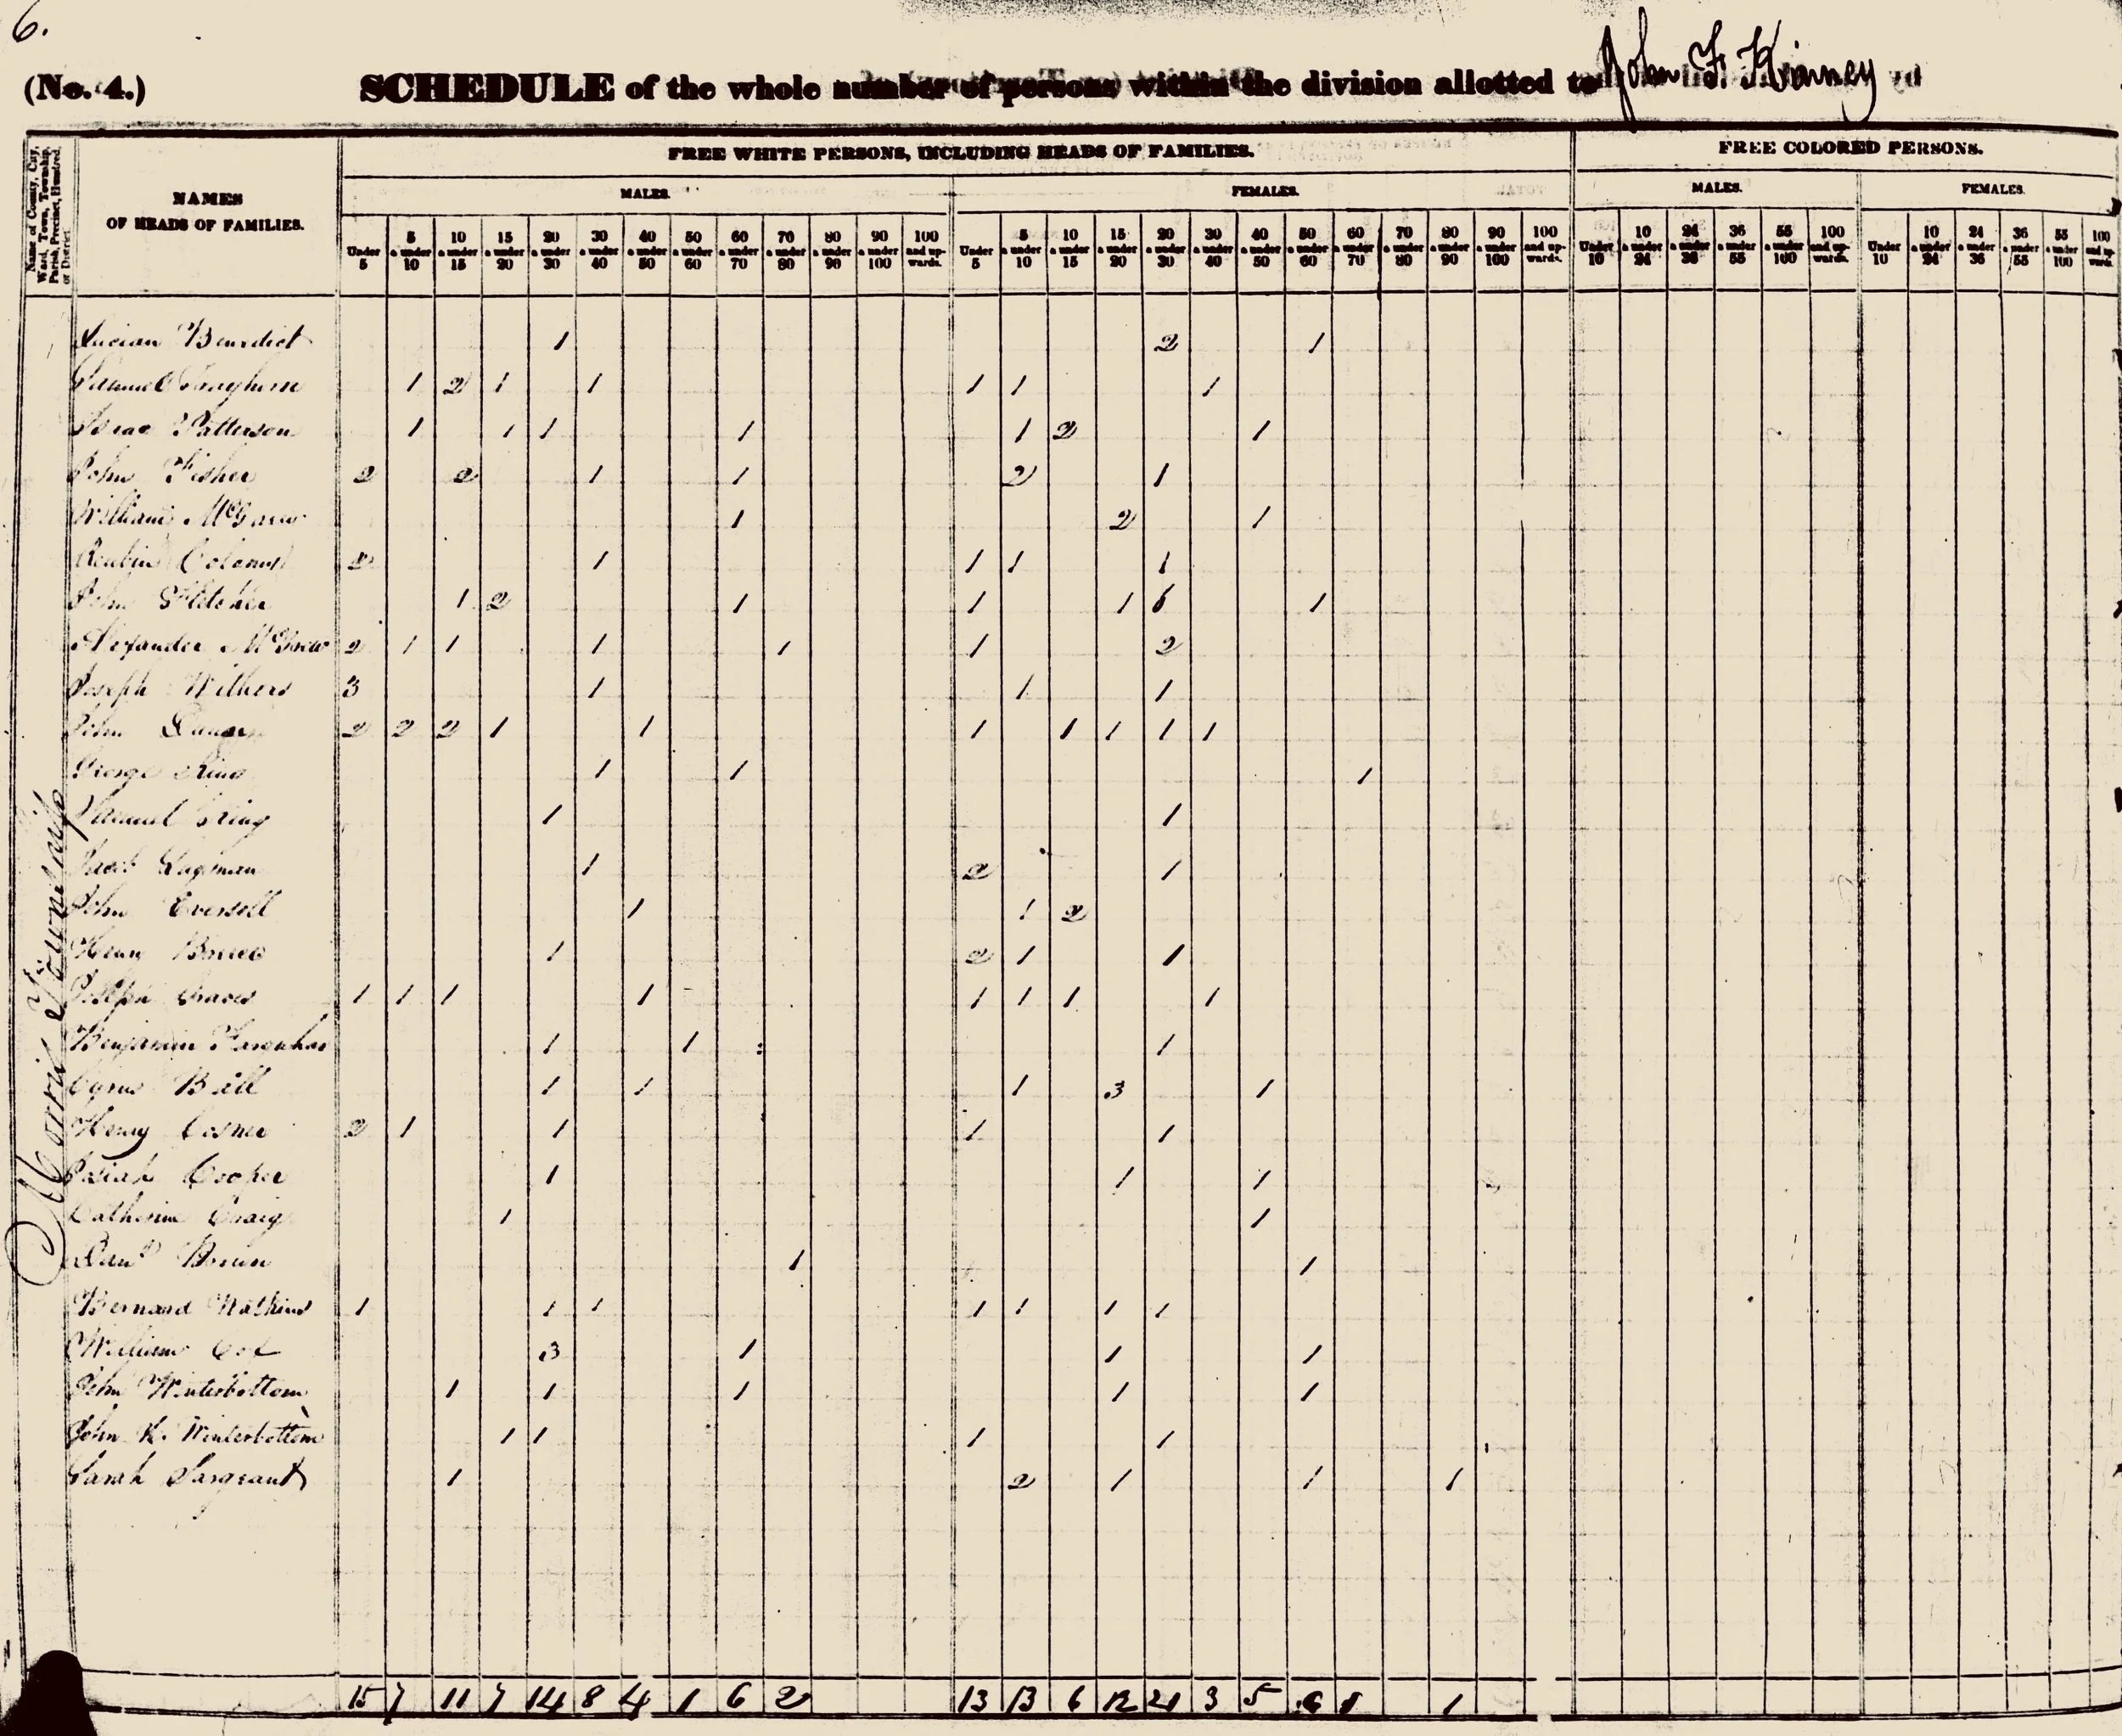 6.
(No. 4.) SCHEDULE of the whole number of persons within the division allotted to John F. Kinney
Name of County, City, Ward, Town, Township, Parish, Precinct, Hundred, or District.
NAMES OF HEADS OF FAMILIES.
FREE WHITE PERSONS, INCLUDING HEADS OF FAMILIES.
FREE COLORED PERSONS.
MALES. FEMALES. MALES. FEMALES.
Under 5 | 5 & under 10 | 10 & under 15 | 15 & under 20 | 20 & under 30 | 30 & under 40 | 40 & under 50 | 50 & under 60 | 60 & under 70 | 70 & under 80 | 80 & under 90 | 90 & under 100 | 100 and upwards. | Under 5 | 5 & under 10 | 10 & under 15 | 15 & under 20 | 20 & under 30 | 30 & under 40 | 40 & under 50 | 50 & under 60 | 60 & under 70 | 70 & under 80 | 80 & under 90 | 90 & under 100 | 100 and upwards. | Under 10 | 10 & under 24 | 24 & under 36 | 36 & under 55 | 55 & under 100 | 100 and upwards. | Under 10 | 10 & under 24 | 24 & under 36 | 36 & under 55 | 55 & under 100 | 100 and upwards.
Morris Township
Lucian Benedict 1 2 1
Samuel 1 2 1 1 1 1 1
Isaac Patterson 1 1 1 1 1 2 1
John Fisher 2 2 1 1 2 1
William McGrew 1 2 1
Reubin 2 1 1 1 1
John Fletcher 1 2 1 1 1 6 1
Alexander McGrew 2 1 1 1 1 1 2
Joseph Withers 3 1 1 1
John 2 2 2 1 1 1 1 1 1 1
George King 1 1 1
Samuel King 1 1
Jacob 1 2 1
John Eversoll 1 1 2
Henry 1 2 1 1
Joseph Graves 1 1 1 1 1 1 1 1
Benjamin Farquhar 1 1 1
Cyrus Ball 1 1 1 3 1
Henry Cosner 2 1 1 1 1
Josiah Cooper 1 1 1
Catherine Craig 1 1
Danl Brown 1 1
Bernard Watkins 1 1 1 1 1 1 1
William Cox 3 1 1 1
John Winterbottom 1 1 1 1 1
John K. Winterbottom 1 1 1 1
Sarah Sargeant 1 2 1 1 1
15 7 11 7 14 8 4 1 6 2 13 13 6 12 21 3 5 6 1 1